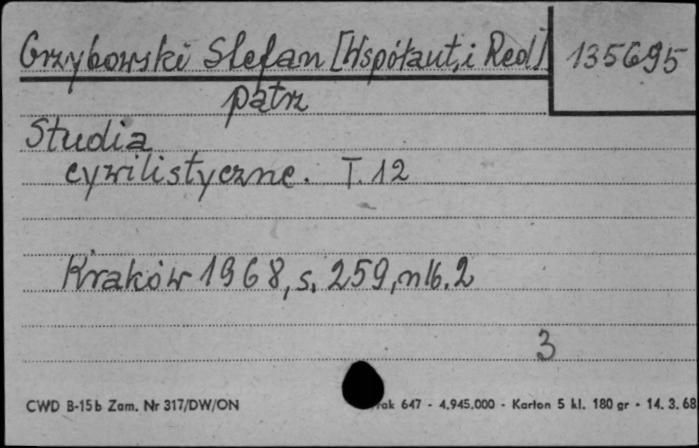 Grzybowski Stefan [Współaut, i Red] 135695
patrz
Studia
cywilistyczne. T. 12
Kraków 1968, s. 259, nlb. 2
3
CWD B-15b Zam. Nr 317/DW/ON rak 647 - 4.945.000 - Karton 5 kl. 180 gr - 14. 3. 68